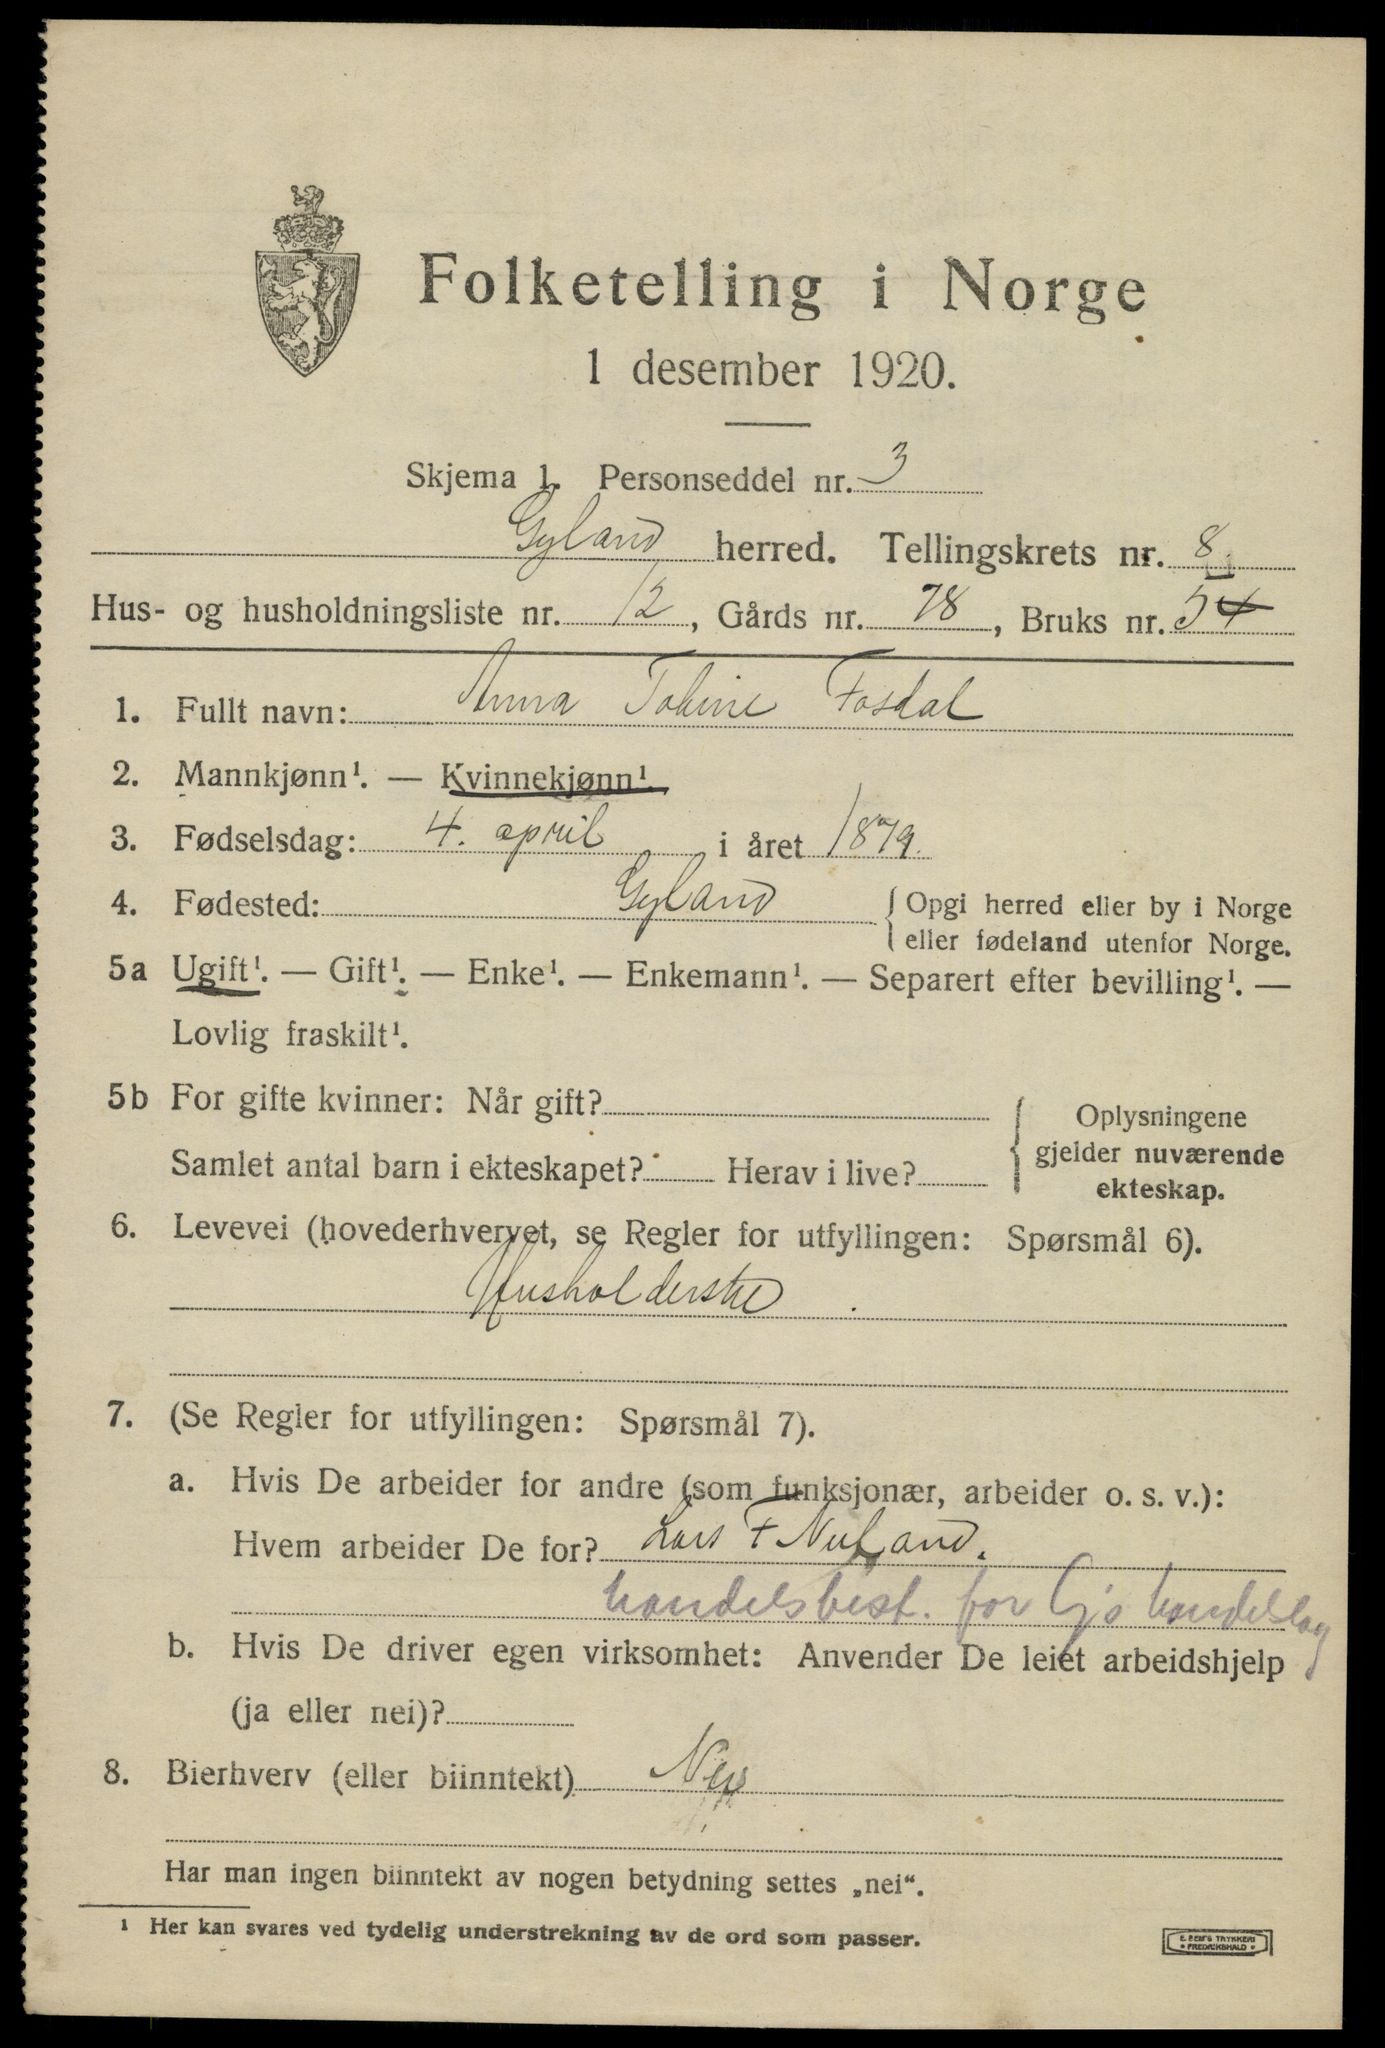 Folketelling i Norge
1 desember 1920.
Skjema 1. Personseddel nr. 3
Gyland herred. Tellingskrets nr. 8
Hus- og husholdningsliste nr. 12, Gårds nr. 78, Bruks nr. 54
1. Fullt navn: Anna Tobine Fosdal
2. Mannkjønn¹. — Kvinnekjønn¹.
3. Fødselsdag: 4. april i året 1879.
4. Fødested: Gyland { Opgi herred eller by i Norge
eller fødeland utenfor Norge.
5a Ugift¹. — Gift¹. — Enke¹. — Enkemann¹. — Separert efter bevilling¹. —
Lovlig fraskilt¹.
5b For gifte kvinner: Når gift? { Oplysningene
gjelder nuværende
Samlet antal barn i ekteskapet? Herav i live?
ekteskap.
6. Levevei (hovederhvervet, se Regler for utfyllingen: Spørsmål 6).
Husholderske
7. (Se Regler for utfyllingen: Spørsmål 7).
a. Hvis De arbeider for andre (som funksjonær, arbeider o. s. v.):
Hvem arbeider De for? Lars F Nuland.
handelsbest. for Gj's handelslag
b. Hvis De driver egen virksomhet: Anvender De leiet arbeidshjelp
(ja eller nei)?
8. Bierhverv (eller biinntekt) Nei
Har man ingen biinntekt av nogen betydning settes „nei“.
¹ Her kan svares ved tydelig understrekning av de ord som passer.